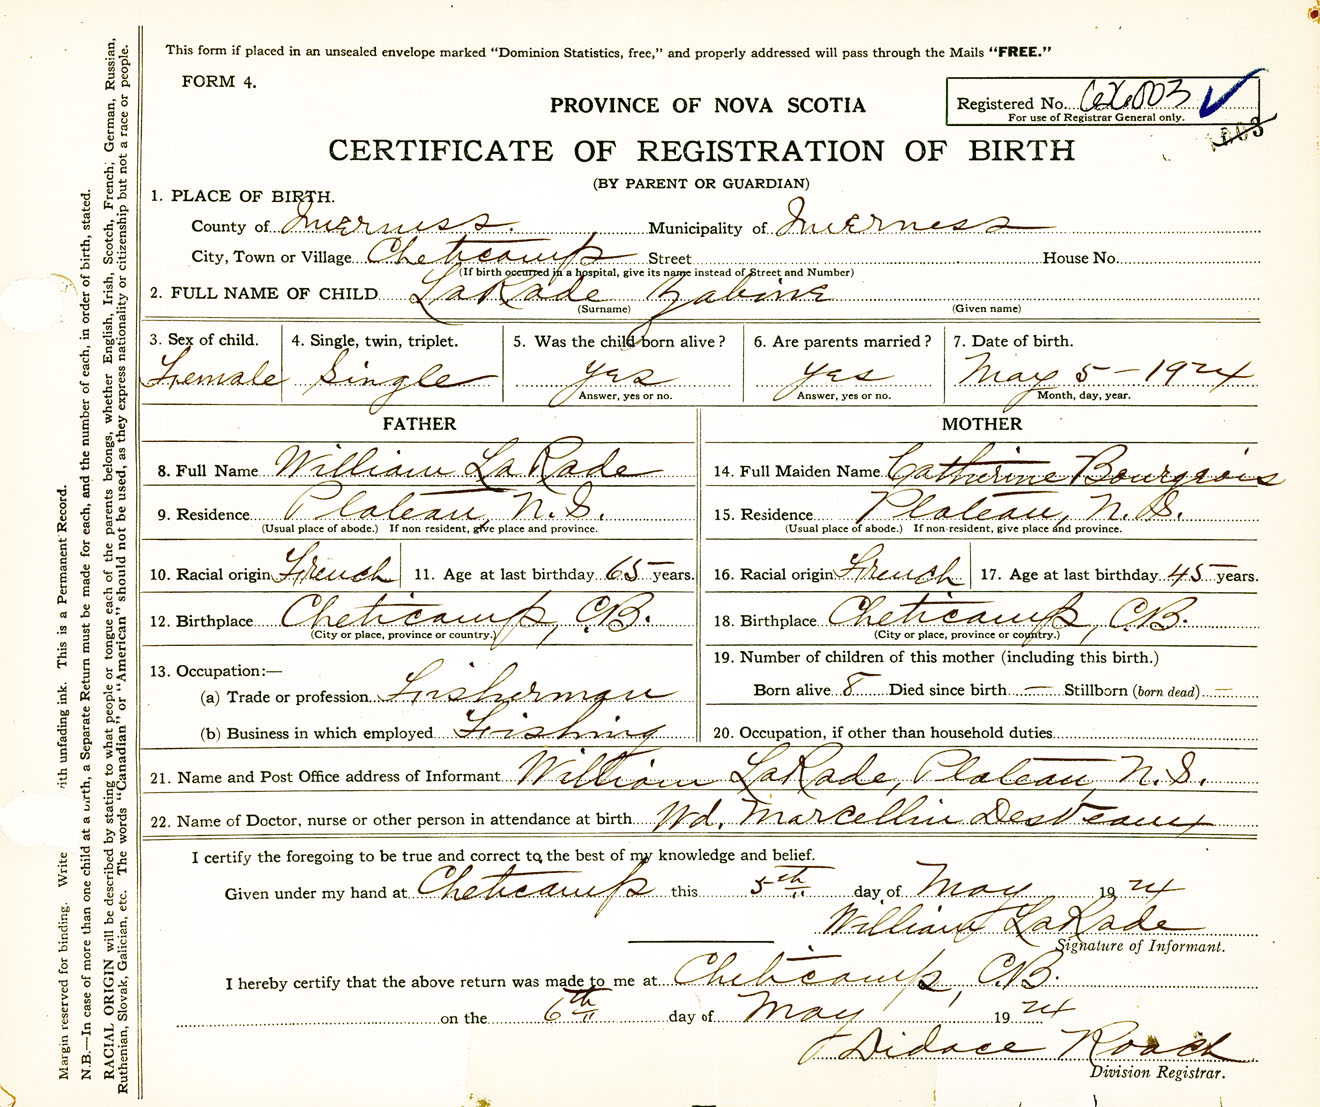 This form if placed in an unsealed envelope marked "Dominion Statistics, free," and properly addressed will pass through the Mails "FREE."
FORM 4.
PROVINCE OF NOVA SCOTIA
Registered No. 626003
For use of Registrar General only.
CERTIFICATE OF REGISTRATION OF BIRTH
(BY PARENT OR GUARDIAN)
1. PLACE OF BIRTH.
County of Inverness. Municipality of Inverness
City, Town or Village Cheticamp Street House No.
(If birth occurred in a hospital, give its name instead of Street and Number)
2. FULL NAME OF CHILD LaRade Zabine
(Surname) (Given name)
3. Sex of child. 4. Single, twin, triplet. 5. Was the child born alive? 6. Are parents married? 7. Date of birth.
Female Single yes yes May 5 - 1924
Answer, yes or no. Answer, yes or no. Month, day, year.
FATHER MOTHER
8. Full Name William LaRade 14. Full Maiden Name Catherine Bourgeois
9. Residence Plateau, N.S. 15. Residence Plateau, N.S.
(Usual place of abode.) If non resident, give place and province. (Usual place of abode.) If non-resident, give place and province.
10. Racial origin French 11. Age at last birthday 65 years. 16. Racial origin French 17. Age at last birthday 45 years.
12. Birthplace Cheticamp, C.B. 18. Birthplace Cheticamp, C.B.
(City or place, province or country.) (City or place, province or country.)
13. Occupation:— 19. Number of children of this mother (including this birth.)
(a) Trade or profession Fisherman Born alive 8 Died since birth — Stillborn (born dead) —
(b) Business in which employed Fishing 20. Occupation, if other than household duties
21. Name and Post Office address of Informant William LaRade, Plateau, N.S.
22. Name of Doctor, nurse or other person in attendance at birth Wd. Marcellin DesVeaux
I certify the foregoing to be true and correct to the best of my knowledge and belief.
Given under my hand at Cheticamp this 5th day of May 1924
William LaRade
Signature of Informant.
I hereby certify that the above return was made to me at Cheticamp, C.B.
on the 6th day of May 1924
Didace Roach
Division Registrar.
Margin reserved for binding. Write with unfading ink. This is a Permanent Record.
N.B.—In case of more than one child at a birth, a Separate Return must be made for each, and the number of each, in order of birth, stated.
RACIAL ORIGIN will be described by stating to what people or tongue each of the parents belongs, whether English, Irish, Scotch, French, German, Russian,
Ruthenian, Slovak, Galician, etc. The words "Canadian" or "American" should not be used, as they express nationality or citizenship but not a race or people.